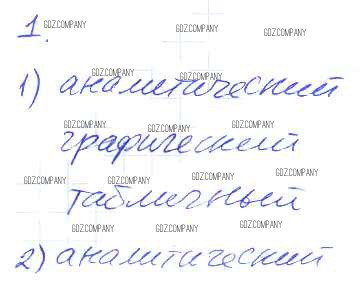 1.
1) аналитический
графический
табличный
2) аналитический
GDZ.COMPANY GDZ.COMPANY GDZ.COMPANY
GDZ.COMPANY GDZ.COMPANY
GDZ.COMPANY GDZ.COMPANY GDZ.COMPANY
GDZ.COMPANY GDZ.COMPANY GDZ.COMPANY GDZ.COMPANY
GDZ.COMPANY GDZ.COMPANY GDZ.COMPANY